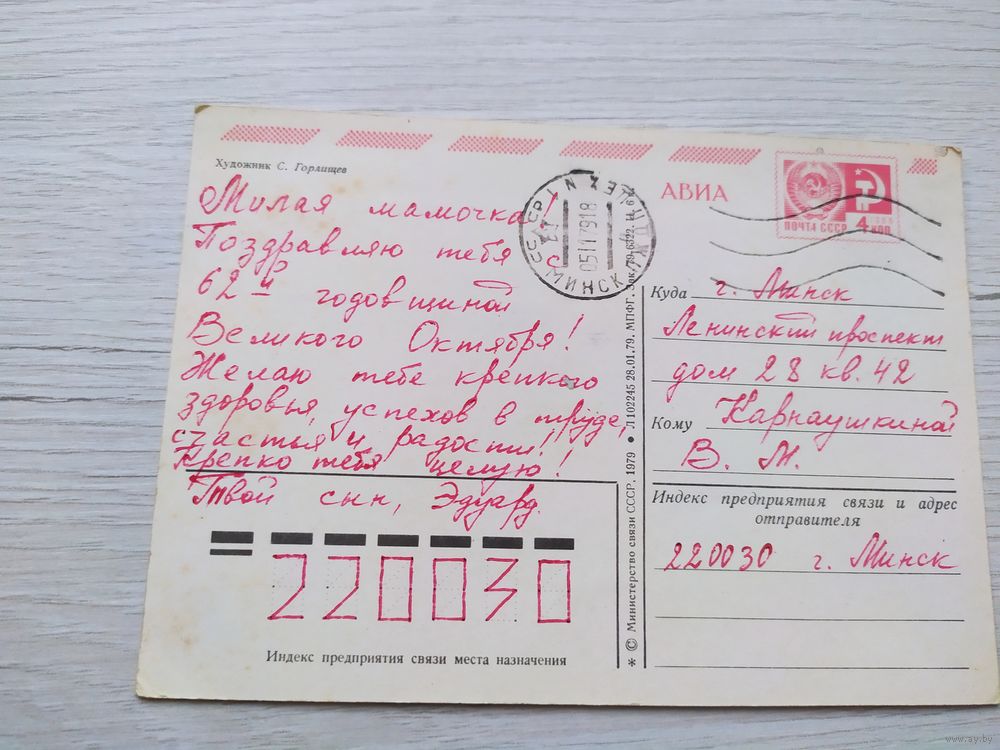 Художник С. Горлищев
Милая мамочка!
Поздравляю тебя с
62й годовщиной
Великого Октября!
Желаю тебе крепкого
здоровья, успехов в труде,
счастья и радости!
Крепко тебя целую!
Твой сын, Эдуард.
220030
Индекс предприятия связи места назначения
* © Министерство связи СССР, 1979 • Л 102245 28.01.79. МПФГ. Зак. 79-6322. Н. 9
АВИА
ПОЧТА СССР 4 КОП
МИНСК
Куда г. Минск
Ленинский проспект
дом 28 кв. 42
Кому Карнаушкиной
В. М.
Индекс предприятия связи и адрес
отправителя
220030 г. Минск
www.ay.by